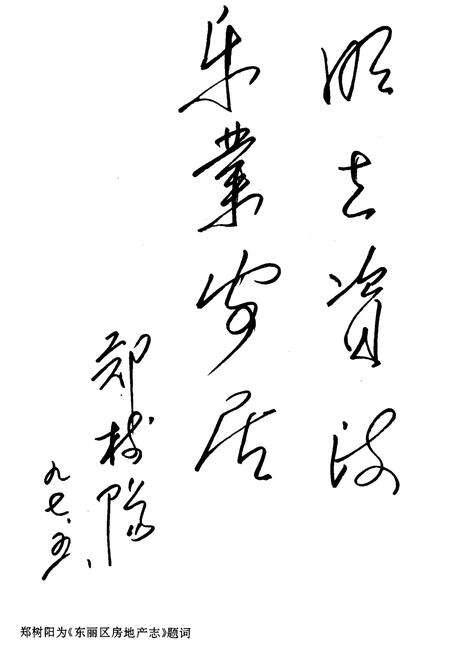 志資政
乐業安居
郑树阳
九七.五、
郑树阳为《东丽区房地产志》题词